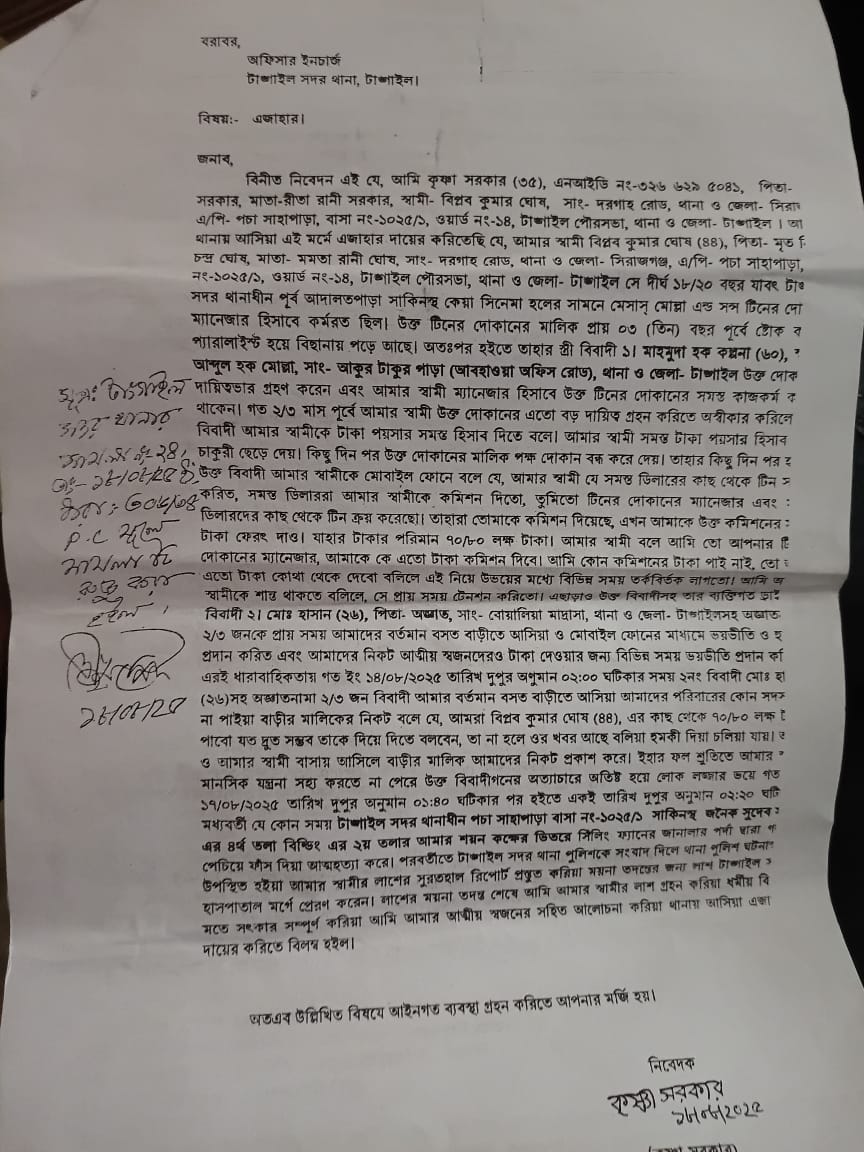 বরাবর,
অফিসার ইনচার্জ
টাঙ্গাইল সদর থানা, টাঙ্গাইল।
বিষয়:- এজাহার।
জনাব,
বিনীত নিবেদন এই যে, আমি কৃষ্ণা সরকার (৩৫), এনআইডি নং-৩২৬ ৬২৯ ৫০৪১, পিতা-
সরকার, মাতা-রীতা রানী সরকার, স্বামী- বিপ্লব কুমার ঘোষ, সাং- দরগাহ রোড, থানা ও জেলা- সিরা
এ/পি- পচা সাহাপাড়া, বাসা নং-১০২৫/১, ওয়ার্ড নং-১৪, টাঙ্গাইল পৌরসভা, থানা ও জেলা- টাঙ্গাইল ।
থানায় আসিয়া এই মর্মে এজাহার দায়ের করিতেছি যে, আমার স্বামী বিপ্লব কুমার ঘোষ (৪৪), পিতা- মৃত
চন্দ্র ঘোষ, মাতা- মমতা রানী ঘোষ, সাং- দরগাহ রোড, থানা ও জেলা- সিরাজগঞ্জ, এ/পি- পচা সাহাপাড়া,
নং-১০২৫/১, ওয়ার্ড নং-১৪, টাঙ্গাইল পৌরসভা, থানা ও জেলা- টাঙ্গাইল সে দীর্ঘ ১৮/২০ বছর যাবৎ
সদর থানাধীন পূর্ব আদালতপাড়া সাকিনস্থ কেয়া সিনেমা হলের সামনে মেসাস্ মোল্লা এন্ড সন্স টিনের দো
ম্যানেজার হিসাবে কর্মরত ছিল। উক্ত টিনের দোকানের মালিক প্রায় ০৩ (তিন) বছর পূর্বে ষ্টোক
প্যারালাইস্ট হয়ে বিছানায় পড়ে আছে। অতঃপর হইতে তাহার স্ত্রী বিবাদী ১। মাহমুদা হক কল্পনা (৬০),
আব্দুল হক মোল্লা, সাং- আকুর টাকুর পাড়া (আবহাওয়া অফিস রোড), থানা ও জেলা- টাঙ্গাইল উক্ত দোক
দায়িত্বভার গ্রহণ করেন এবং আমার স্বামী ম্যানেজার হিসাবে উক্ত টিনের দোকানের সমস্ত কাজকর্ম
থাকেন। গত ২/৩ মাস পূর্বে আমার স্বামী উক্ত দোকানের এতো বড় দায়িত্ব গ্রহন করিতে অস্বীকার করিলে
বিবাদী আমার স্বামীকে টাকা পয়সার সমস্ত হিসাব দিতে বলে। আমার স্বামী সমস্ত টাকা পয়সার হিসাব
চাকুরী ছেড়ে দেয়। কিছু দিন পর উক্ত দোকানের মালিক পক্ষ দোকান বন্ধ করে দেয়। তাহার কিছু দিন পর
উক্ত বিবাদী আমার স্বামীকে মোবাইল ফোনে বলে যে, আমার স্বামী যে সমস্ত ডিলারের কাছ থেকে টিন
করিত, সমস্ত ডিলাররা আমার স্বামীকে কমিশন দিতো, তুমিতো টিনের দোকানের ম্যানেজার এবং
ডিলারদের কাছ থেকে টিন ক্রয় করেছো। তাহারা তোমাকে কমিশন দিয়েছে, এখন আমাকে উক্ত কমিশনের
টাকা ফেরৎ দাও। যাহার টাকার পরিমান ৭০/৮০ লক্ষ টাকা। আমার স্বামী বলে আমি তো আপনার
দোকানের ম্যানেজার, আমাকে কে এতো টাকা কমিশন দিবে। আমি কোন কমিশনের টাকা পাই নাই,
এতো টাকা কোথা থেকে দেবো বলিলে এই নিয়ে উভয়ের মধ্যে বিভিন্ন সময় তর্কবিতর্ক লাগতো। আমি
স্বামীকে শান্ত থাকতে বলিলে, সে প্রায় সময় টেনশন করিতো। এছাড়াও উক্ত বিবাদীসহ তার ব্যক্তিগত
বিবাদী ২। মোঃ হাসান (২৬), পিতা- অজ্ঞাত, সাং- বোয়ালিয়া মাদ্রাসা, থানা ও জেলা- টাঙ্গাইলসহ অজ্ঞাত
২/৩ জনকে প্রায় সময় আমাদের বর্তমান বসত বাড়ীতে আসিয়া ও মোবাইল ফোনের মাধ্যমে ভয়ভীতি ও
প্রদান করিত এবং আমাদের নিকট আত্মীয় স্বজনদেরও টাকা দেওয়ার জন্য বিভিন্ন সময় ভয়ভীতি প্রদান
এরই ধারাবাহিকতায় গত ইং ১৪/০৮/২০২৫ তারিখ দুপুর অনুমান ০২:০০ ঘটিকার সময় ২নং বিবাদী মোঃ
(২৬)সহ অজ্ঞাতনামা ২/৩ জন বিবাদী আমার বর্তমান বসত বাড়ীতে আসিয়া আমাদের পরিবারের কোন সদস
না পাইয়া বাড়ীর মালিকের নিকট বলে যে, আমরা বিপ্লব কুমার ঘোষ (৪৪), এর কাছ থেকে ৭০/৮০ লক্ষ
পাবো যত দ্রুত সম্ভব তাকে দিয়ে দিতে বলবেন, তা না হলে ওর খবর আছে বলিয়া হুমকী দিয়া চলিয়া যায়।
ও আমার স্বামী বাসায় আসিলে বাড়ীর মালিক আমাদের নিকট প্রকাশ করে। ইহার ফল শ্রুতিতে আমার
মানসিক যন্ত্রনা সহ্য করতে না পেরে উক্ত বিবাদীগনের অত্যাচারে অতিষ্ট হয়ে লোক লজ্জার ভয়ে গত
১৭/০৮/২০২৫ তারিখ দুপুর অনুমান ০১:৪০ ঘটিকার পর হইতে একই তারিখ দুপুর অনুমান ০২:২০ ঘটি
মধ্যবর্তী যে কোন সময় টাঙ্গাইল সদর থানাধীন পচা সাহাপাড়া বাসা নং-১০২৫/১ সাকিনস্থ জনৈক সুদেব
এর ৪র্থ তলা বিল্ডিং এর ২য় তলার আমার শয়ন কক্ষের ভিতরে সিলিং ফ্যানের জানালার পর্দা দ্বারা
পেচিয়ে ফাঁস দিয়া আত্মহত্যা করে। পরবর্তীতে টাঙ্গাইল সদর থানা পুলিশকে সংবাদ দিলে থানা পুলিশ ঘটনা
উপস্থিত হইয়া আমার স্বামীর লাশের সুরতহাল রিপোর্ট প্রস্তুত করিয়া ময়না তদন্তের জন্য লাশ টাঙ্গাইল
হাসপাতাল মর্গে প্রেরণ করেন। লাশের ময়না তদন্ত শেষে আমি আমার স্বামীর লাশ গ্রহন করিয়া ধর্মীয় বি
মতে সৎকার সম্পূর্ণ করিয়া আমি আমার আত্মীয় স্বজনের সহিত আলোচনা করিয়া থানায় আসিয়া এজা
দায়ের করিতে বিলম্ব হইল।
অতএব উল্লিখিত বিষয়ে আইনগত ব্যবস্থা গ্রহন করিতে আপনার মর্জি হয়।
নিবেদক
কৃষ্ণা সরকার
১৮/০৮/২০২৫
সূত্র: টাঙ্গাইল
সদর থানার
P.C মূলে
মামলা টি
রুজু করা
হইল।